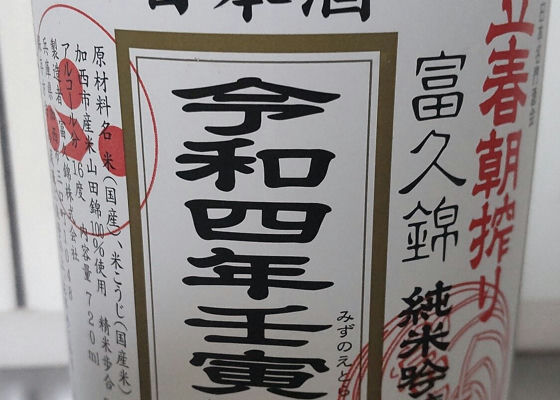 日本酒
立春朝搾り
富久錦
純米吟
令和四年壬寅
みずのえと
原材料名 米(国産)、米こうじ(国産米)
加西市産米山田錦100%使用 精米歩合
アルコール分 16度 内容量 720ml
製造者 富久錦株式会社
兵庫県